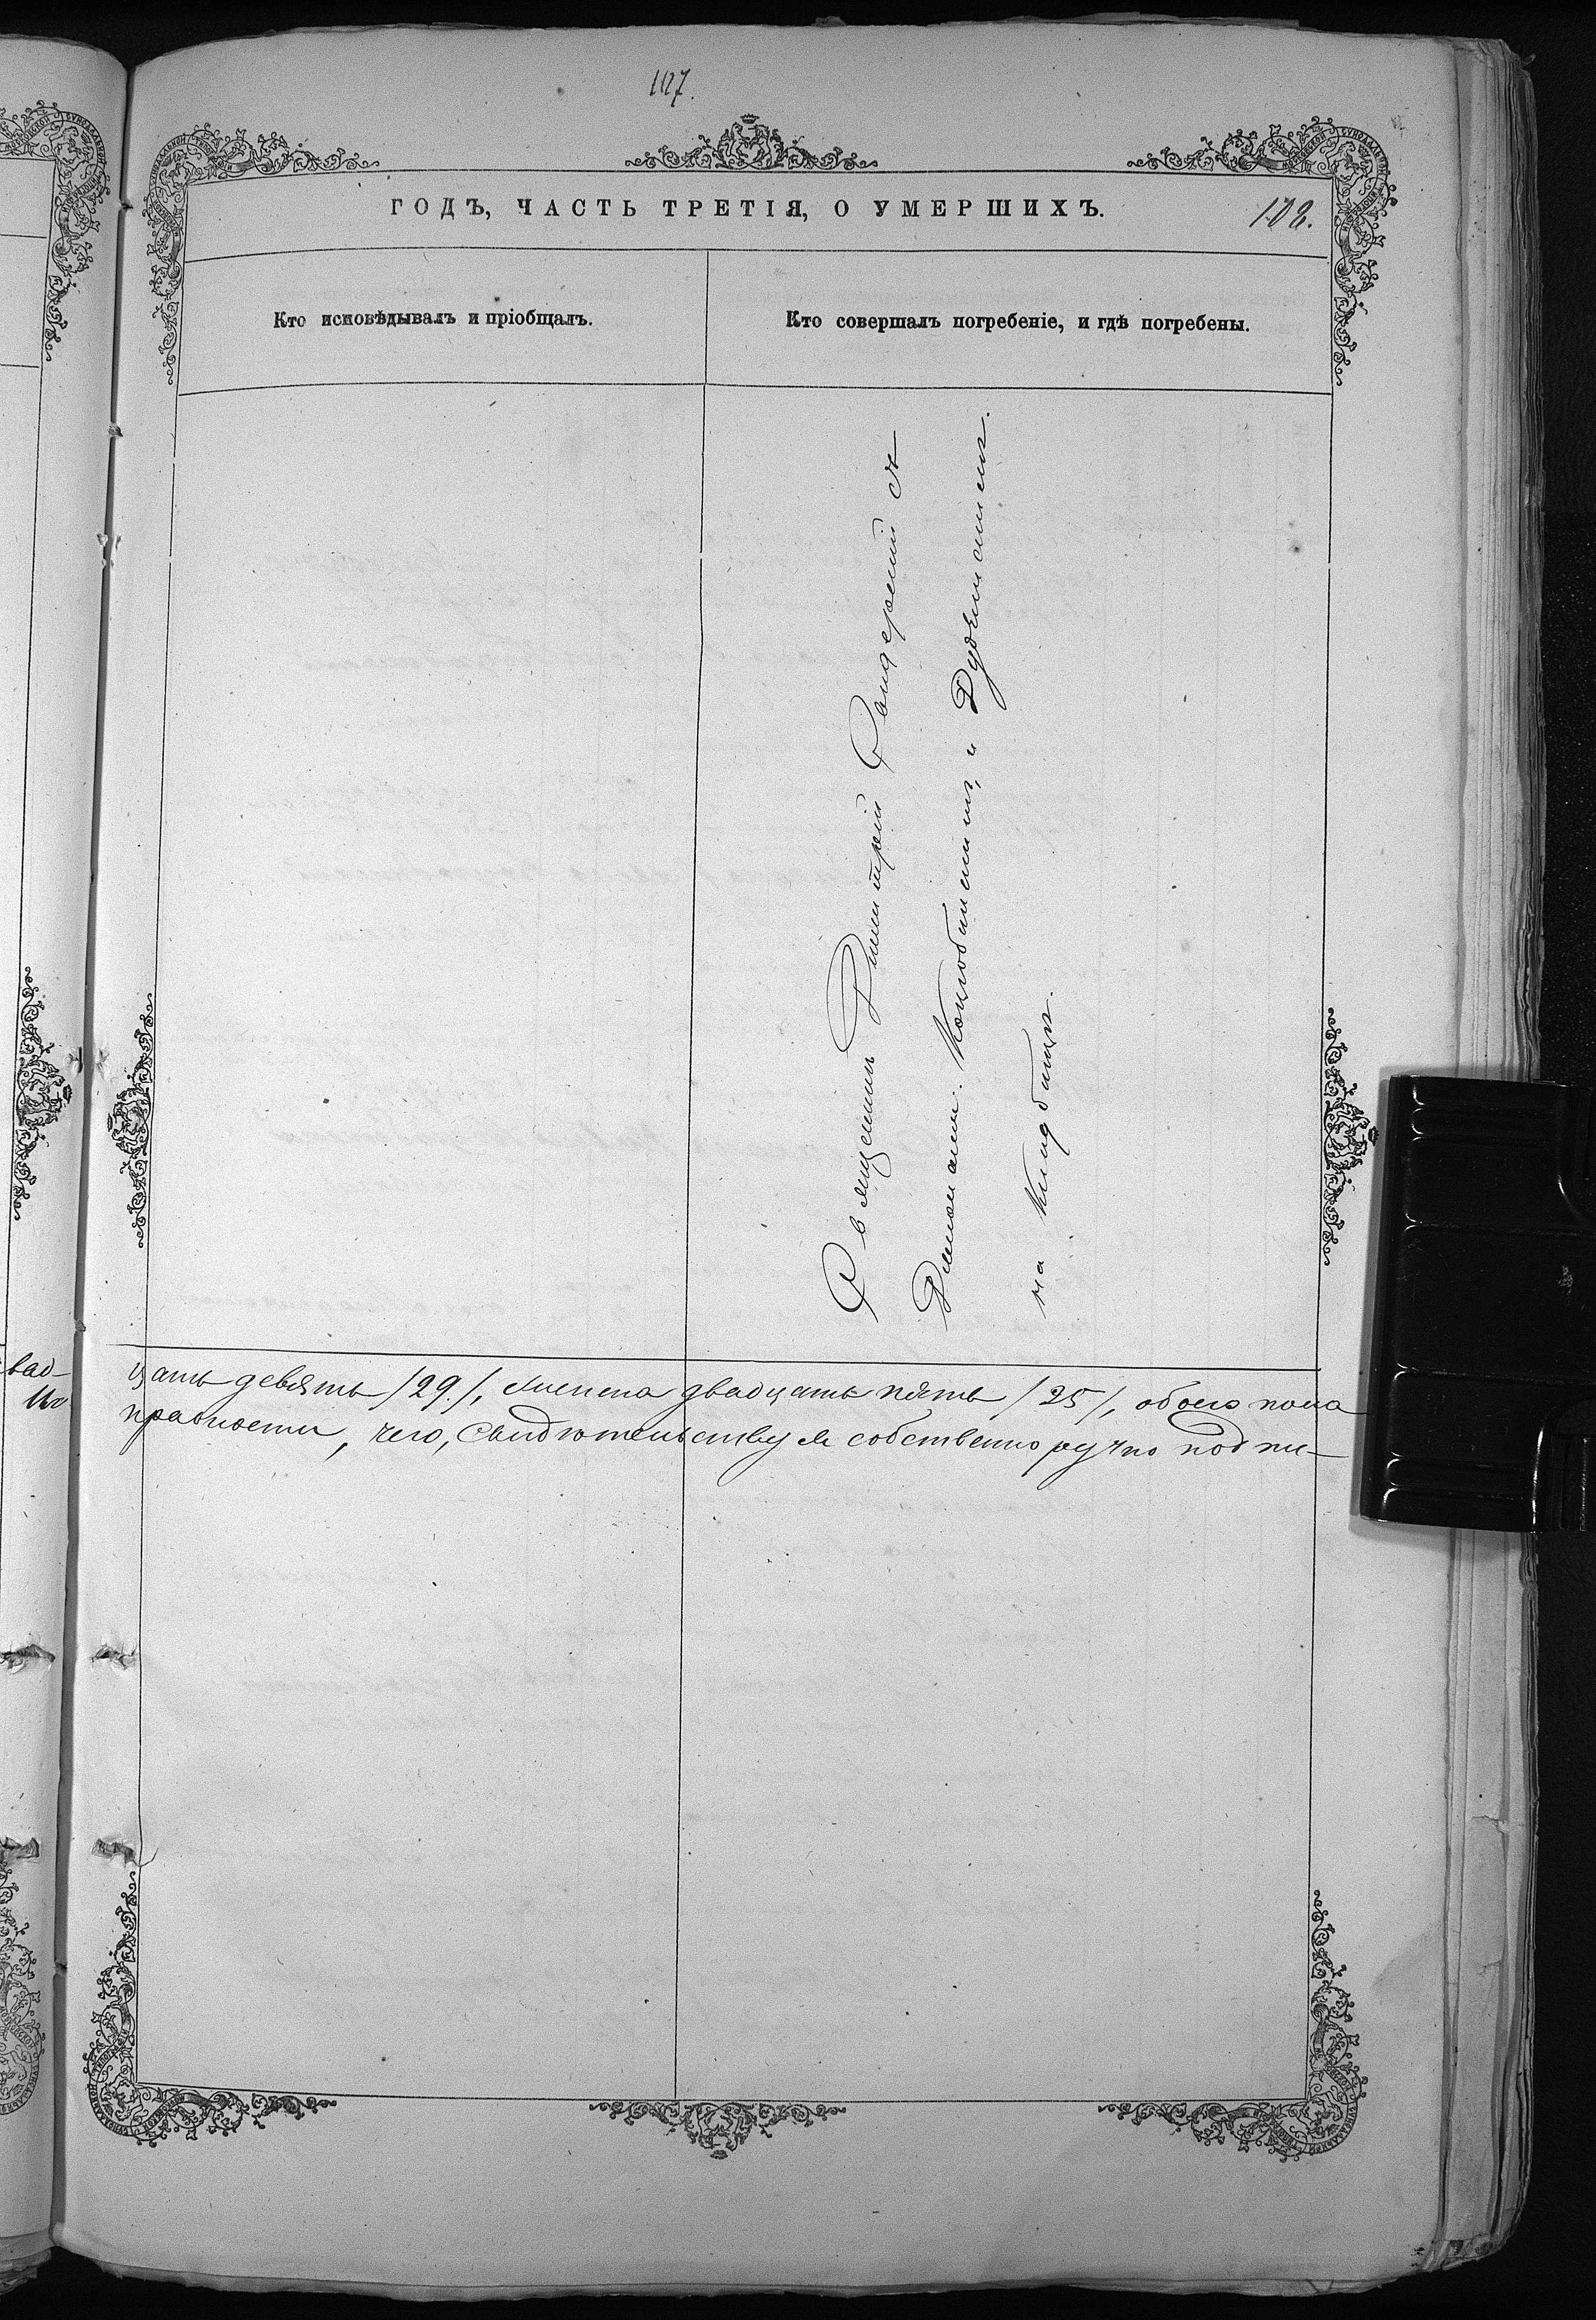 107.
ГОДЪ, ЧАСТЬ ТРЕТІЯ, О УМЕРШИХЪ.
108.
Кто исповѣдывалъ и пріобщалъ.
Кто совершалъ погребеніе, и гдѣ погребены.
Священникъ Димитрій съ
и
на кладбищѣ.
вад-
цать девять /29/, женска двадцать пять /25/, обоего пола
правности, чего, свидѣтельствуя собственноручно подпи-